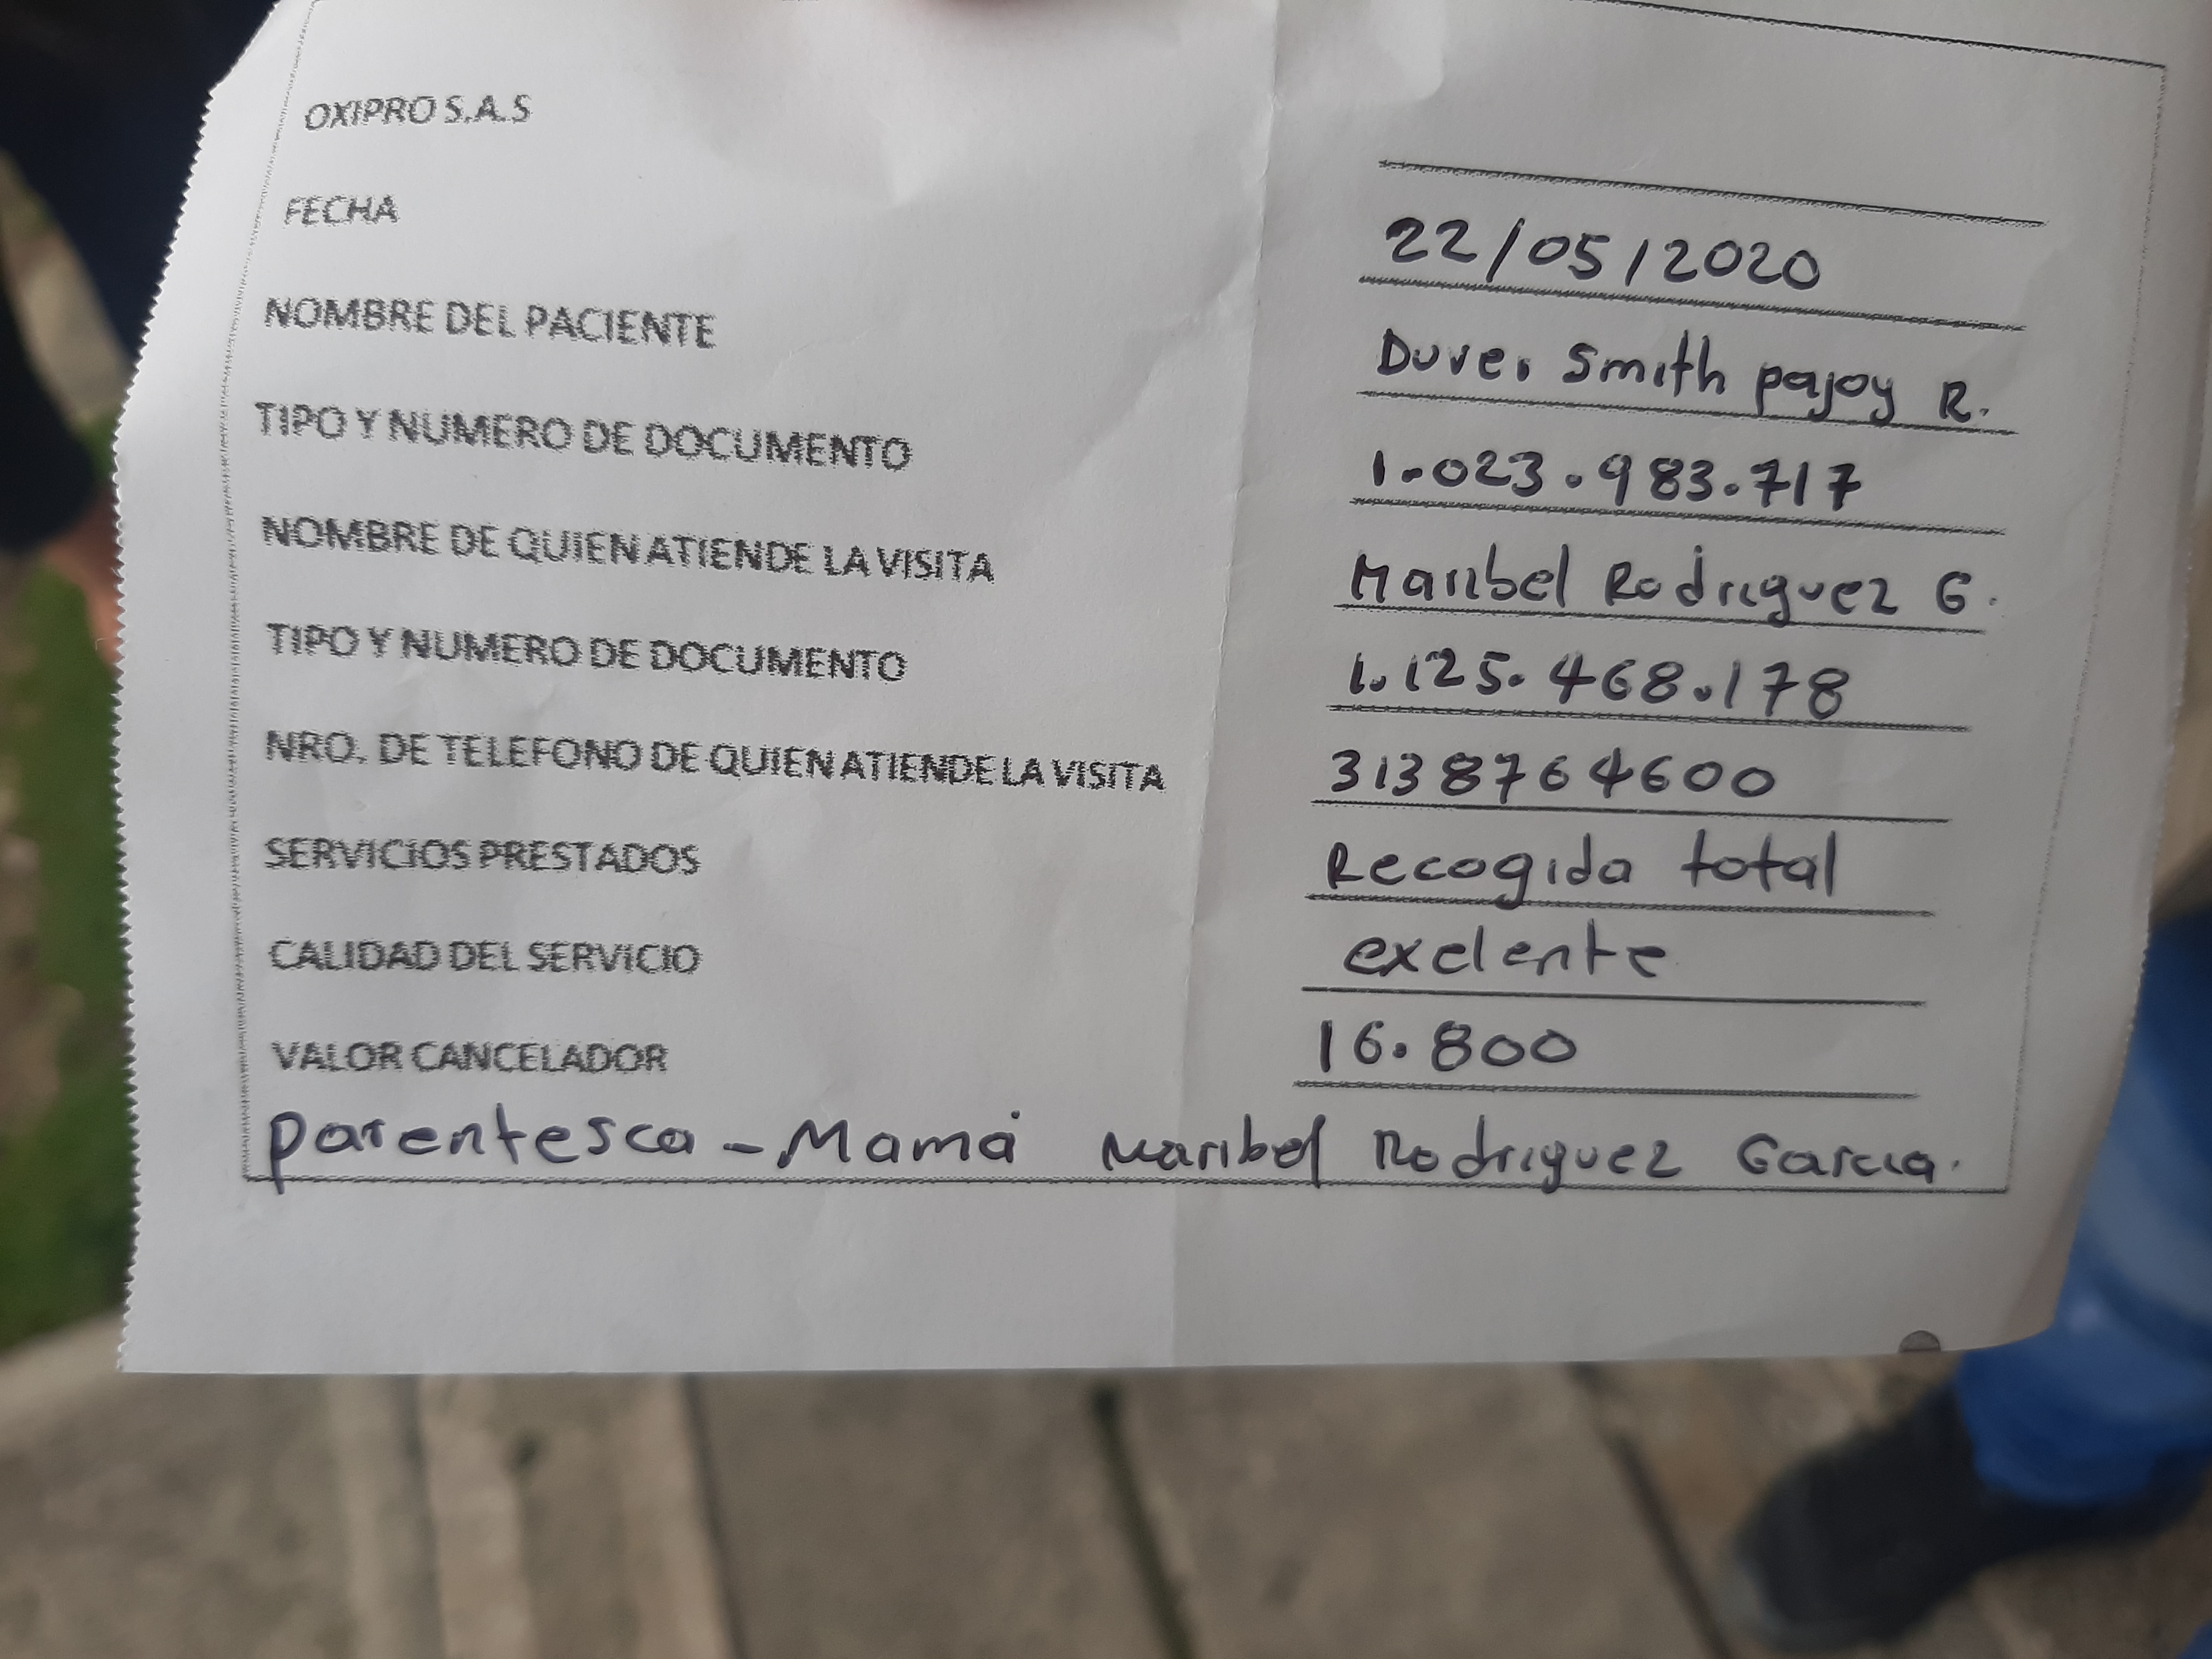 OXIPRO S.A.S
FECHA 22/05/2020
NOMBRE DEL PACIENTE Duver Smith pajoy R.
TIPO Y NUMERO DE DOCUMENTO 1.023.983.717
NOMBRE DE QUIEN ATIENDE LA VISITA Maribel Rodriguez G.
TIPO Y NUMERO DE DOCUMENTO 1.125.468.178
NRO. DE TELEFONO DE QUIEN ATIENDE LA VISITA 3138764600
SERVICIOS PRESTADOS Recogida total
CALIDAD DEL SERVICIO exelente
VALOR CANCELADOR 16.800
parentesco - Mamá Maribel Rodriguez Garcia.